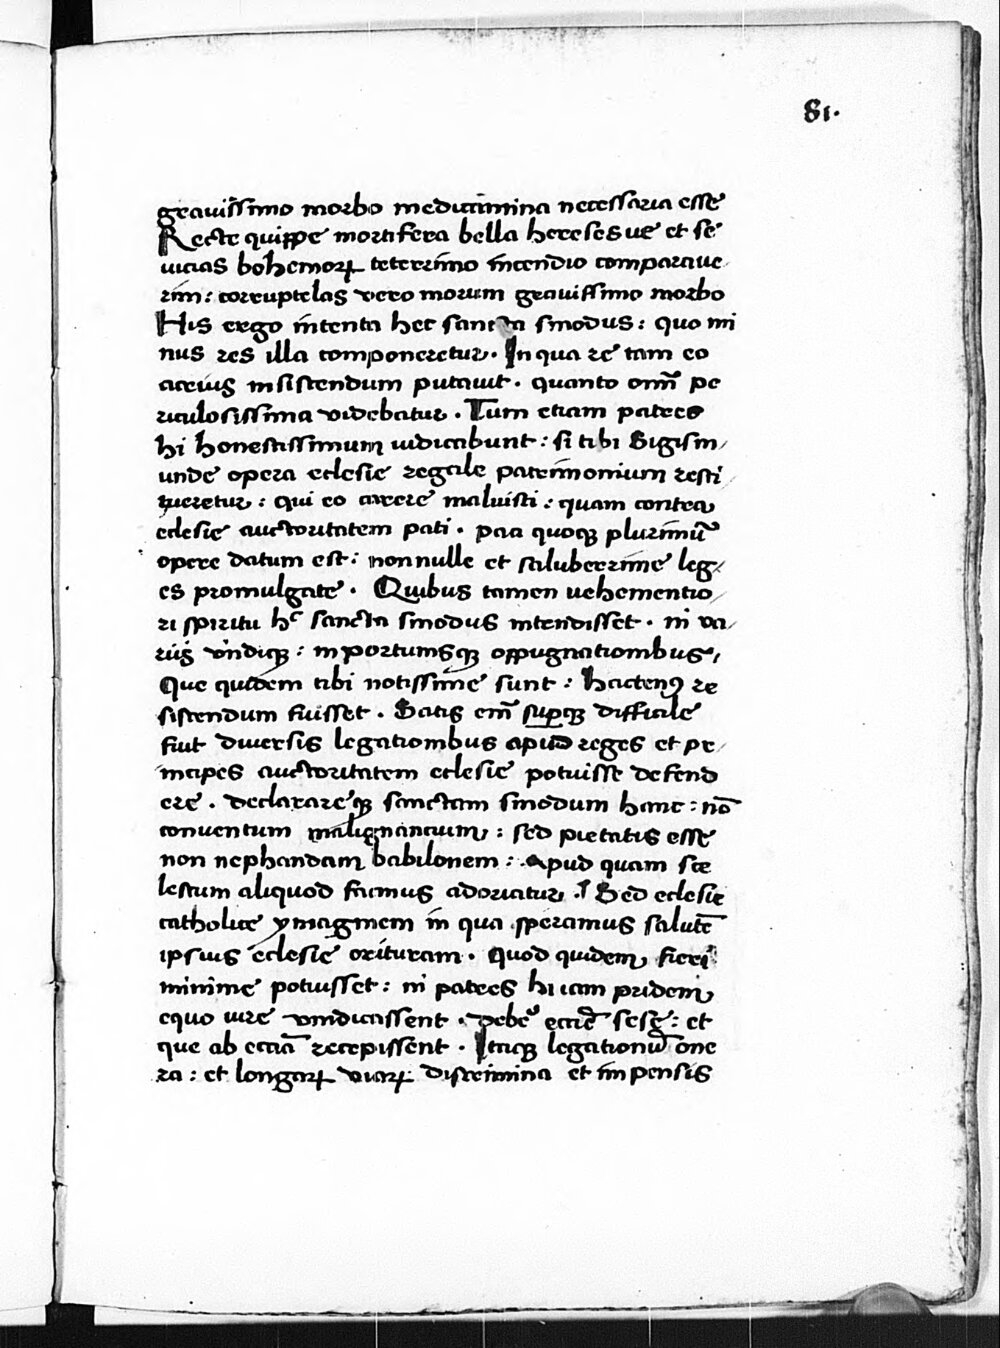 81.
grauissimo morbo medicamina necessaria esse
Recte quippe mortifera bella heresesue et se
uicias bohemoꝝ teterrimo incendio comparaue
rim: corruptelas vero morum grauissimo morbo
His ergo intenta hec sancta sinodus: quo mi
nus res illa componeretur. In qua re tam eo
acrius insistendum putauit. quanto om̄ pe
riculosissima videbatur. Tum etiam patres
hi honestissimum iudicabunt: si tibi Sigism
unde opera eclesie regale patrimonium resti
tueretur: qui eo carere maluisti: quam contra
eclesie auctoritatem pati. paci quoqꝫ plurimū
opere datum est: nonnulle et saluberrime leg
es promulgate. Quibus tamen uehementio
ri spiritu hͨ sancta sinodus intendisset. ni va
riis vndiqꝫ: inportunisqꝫ oppugnationibus,
Que quidem tibi notissime sunt: hactenꝰ re
sistendum fuisset. Satis em̄ superqꝫ difficile
fuit diuersis legationibus apud reges et pr
incipes auctoritatem eclesie potuisse defend
ere. declarareqꝫ sanctam sinodum hanc: nō
conuentum malignancium: sed pietatis esse
non nephandam babilonem: apud quam sce
lestum aliquod facinus adoriatur. Sed eclesie
catholice ymaginem in qua speramus salutē
ipsius eclesie orituram. Quod quidem fieri
minime potuisset: ni patres hi iam pridem
equo iure vindicassent. debeꝰ ecciē sese: et
que ab eccīa recepissent. Itaqꝫ legationū one
ra: et longaꝝ viaꝝ discrimina et inpensis